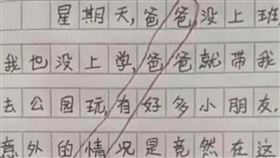 星期天,爸爸没上班
我也没上学,爸爸就带我
去公园玩,有好多小朋友
意外的情况是竟然在这